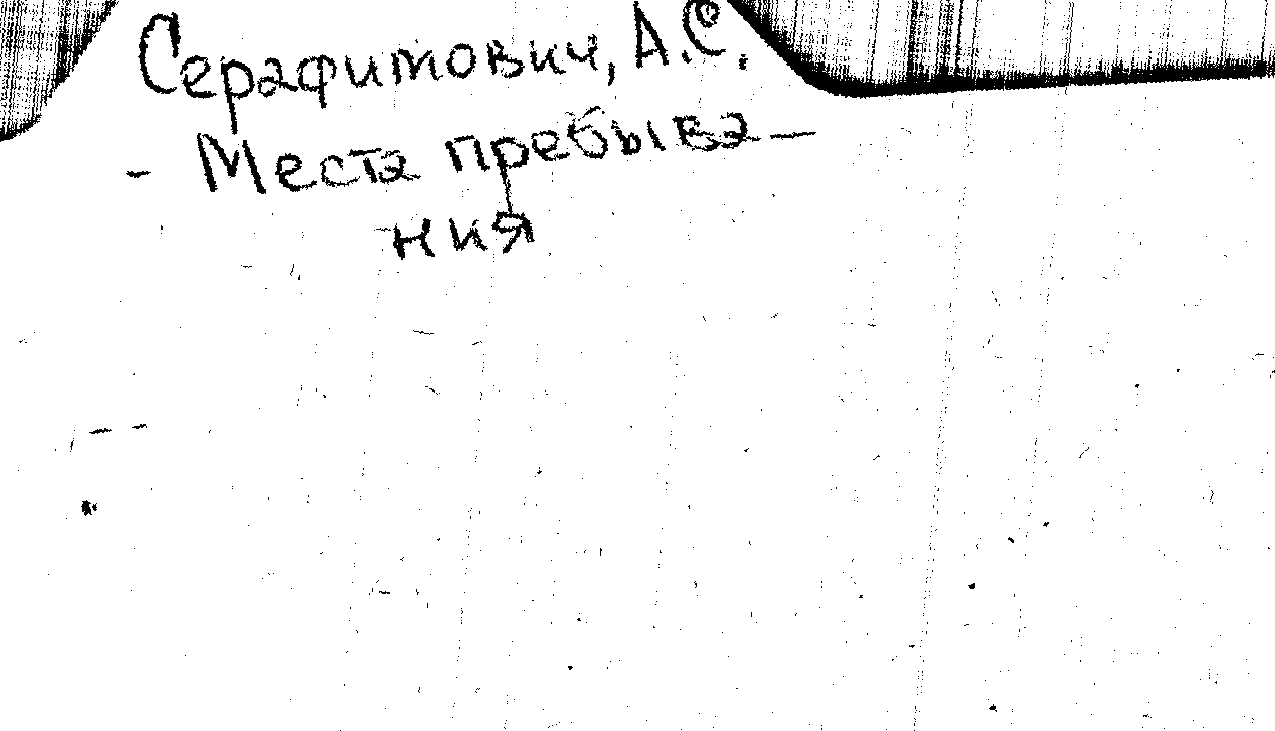 Серафимович, А.С.
- Места пребыва-
ния